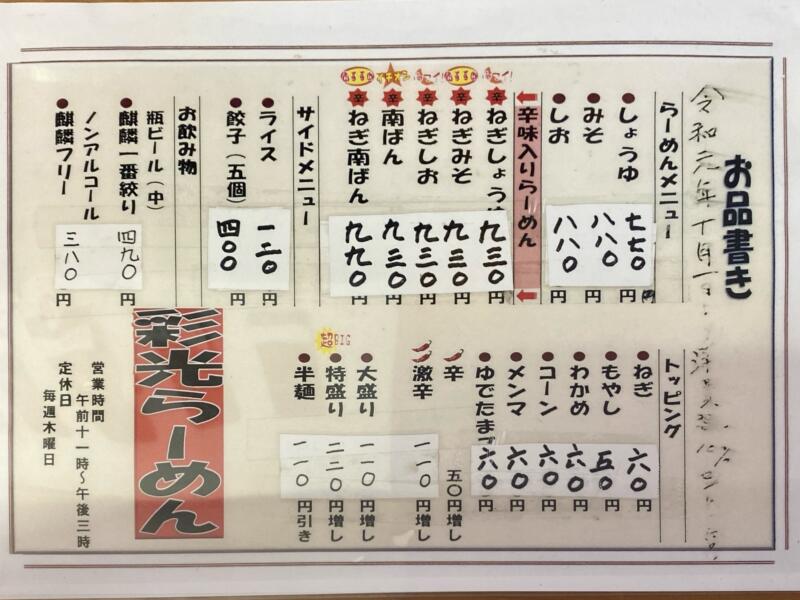 お品書き
令和元年十月一日
らーめんメニュー
しょうゆ 七七〇円
みそ 八八〇円
しお 八八〇円
辛味入りらーめん
辛 ねぎしょうゆ 九三〇円
辛 ねぎみそ 九三〇円
辛 ねぎしお 九三〇円
辛 南ばん 九三〇円
辛 ねぎ南ばん 九九〇円
サイドメニュー
ライス 一二〇円
餃子（五個） 四〇〇円
お飲み物
瓶ビール（中）
麒麟一番絞り 四九〇円
ノンアルコール
麒麟フリー 三八〇円
トッピング
ねぎ 六〇円
もやし 五〇円
わかめ 六〇円
コーン 六〇円
メンマ 六〇円
ゆでたまご 六〇円
辛 五〇円増し
激辛 一一〇円増し
大盛り 一一〇円増し
超BIG
特盛り 二二〇円増し
半麺 一一〇円引き
彩光らーめん
営業時間
午前十一時～午後三時
定休日
毎週木曜日